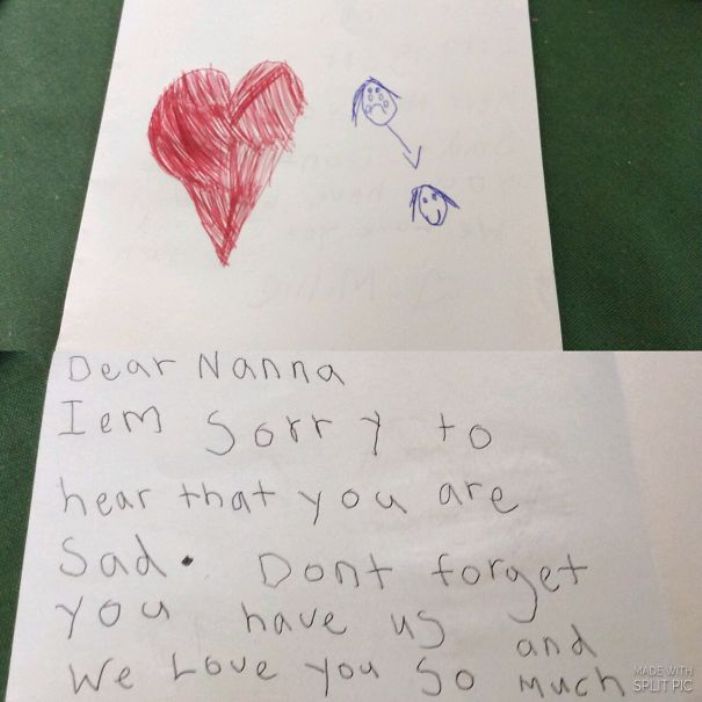 Dear Nanna
Iem Sorry to
hear that you are
Sad. Dont forget
you have us and
We Love you so much
MADE WITH
SPLIT PIC